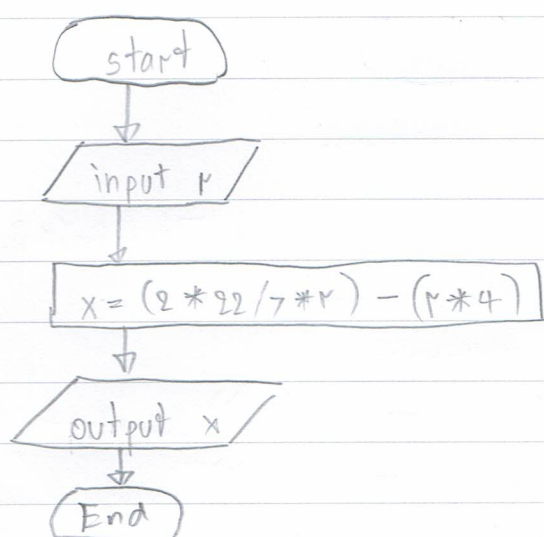 start
input r
x = (2 * 22/7 * r) - (r * 4)
output x
End